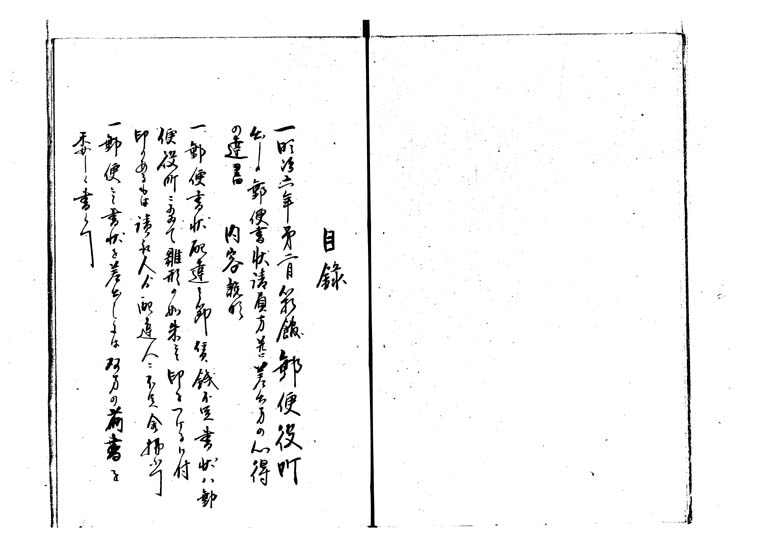 目録
一明治六年第二月 館郵便役所
出し郵便書状請負方并差出方の心得
の達書 内容雛形
一郵便書状配達之節賃銭不足書状ハ郵
便役所ニおゐて雛形の如朱之印を つけ 付
印のあるもは請取人ゟ配達人ニ不足金払 
一郵便之書状を差出しには 方の前書を
委しく書く